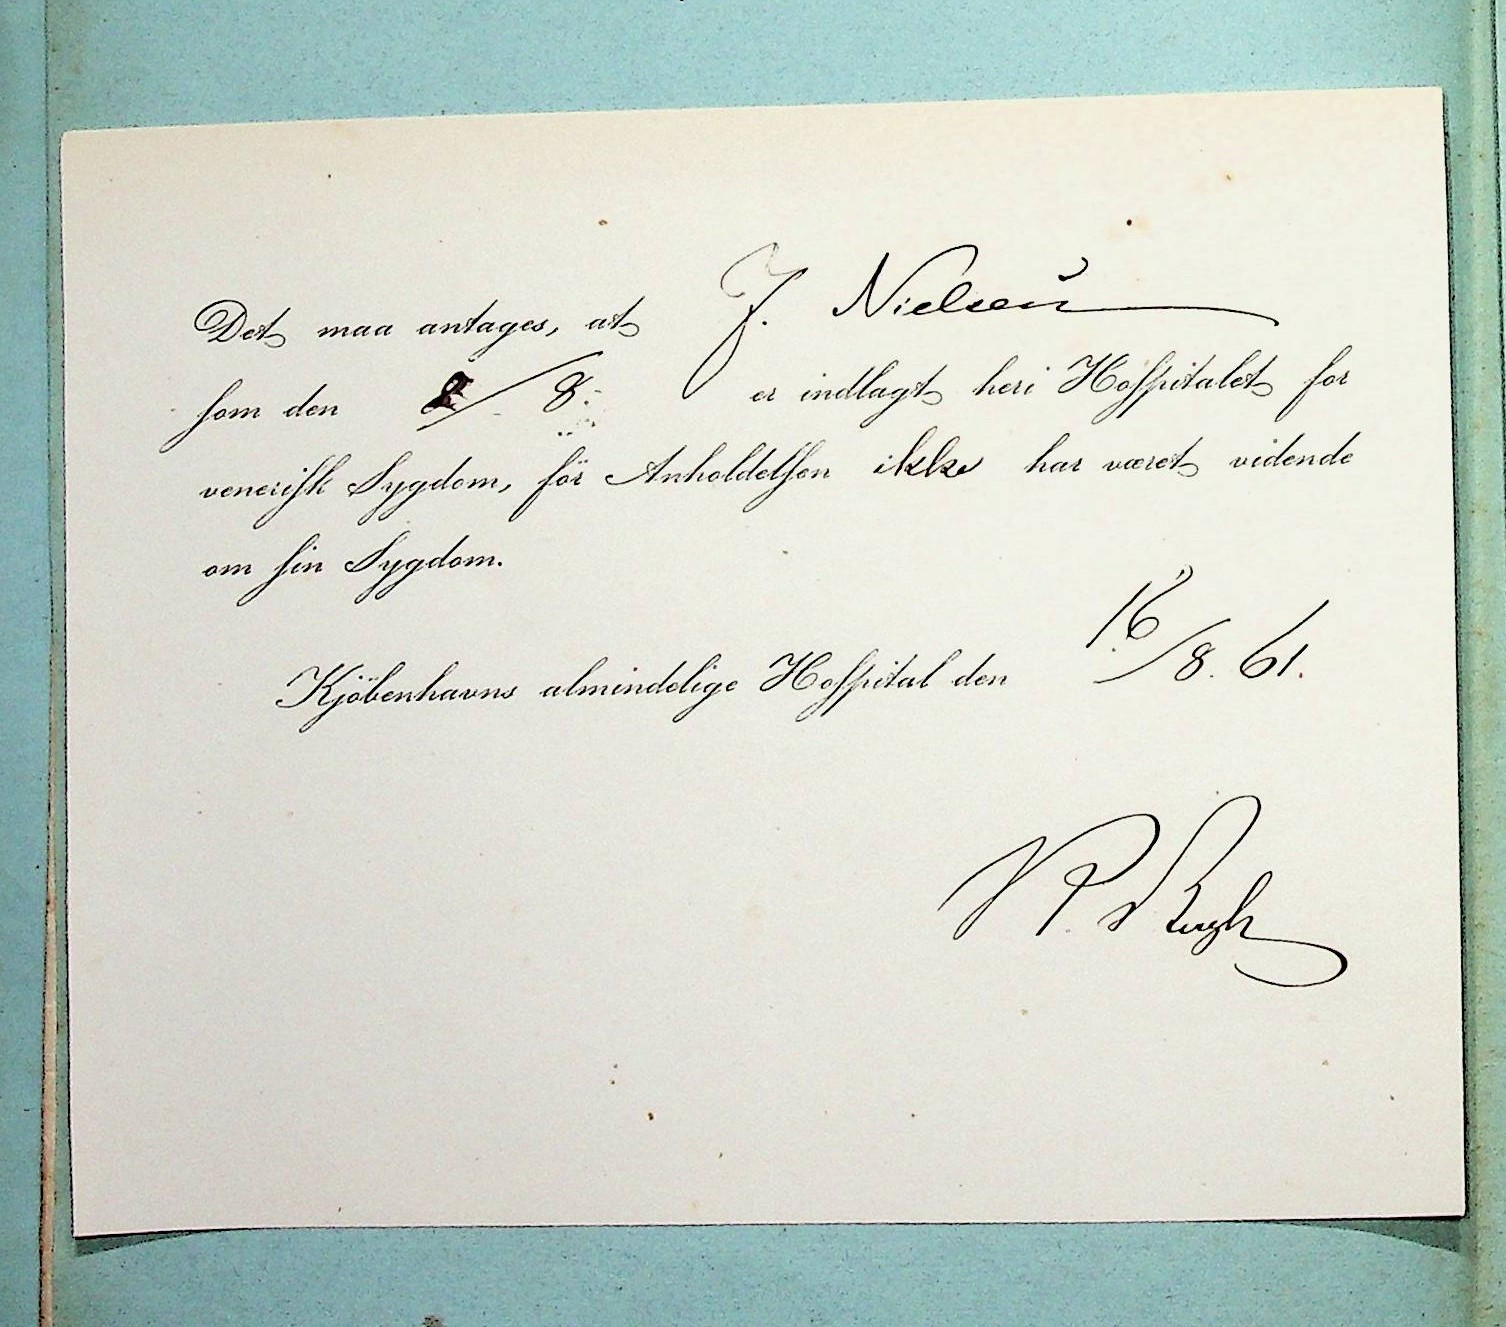 Det maa antages, at J. Nielsen
som den 8/8. er indlagt heri Hospitalet for
venerisk Sygdom, för Anholdelsen ikke har været vidende
om sin Sygdom.
Kjöbenhavns almindelige Hospital den 16/8. 61.